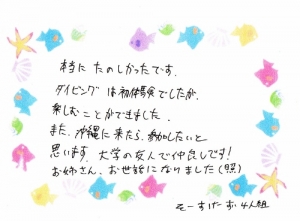 本当に たのしかったです。
ダイビングは初体験でしたが、
楽しむことができました。
また、沖縄に来たら、参加したいと
思います。大学の友人で仲良しです!
お姉さん、お世話になりました(照)
そーすけーず 4人組